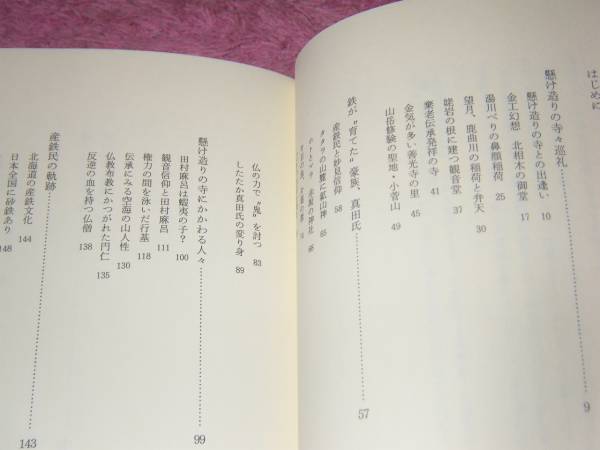 はじめに
懸け造りの寺々巡礼 9
懸け造りの寺との出逢い 10
金工幻想 北相木の御堂 17
湯川べりの鼻顔稲荷 25
望月、鹿曲川の稲荷と弁天 30
姥岩の根に建つ観音堂 37
棄老伝承発祥の寺 41
金気が多い善光寺の里 45
山岳修験の聖地・小菅山 49
鉄が〝育てた〟豪族、真田氏 57
産鉄民と妙見信仰 58
タタラの山麓に鉱山神 65
68
仏の力で〝鬼〟を討つ 83
したたか真田氏の変り身 89
懸け造りの寺にかかわる人々 99
田村麻呂は蝦夷の子? 100
観音信仰と田村麻呂 111
権力の間を泳いだ行基 118
伝承にみる空海の山人性 130
仏教布教にかつがれた円仁 135
反逆の血を持つ仏僧 138
産鉄民の軌跡 143
北海道の産鉄文化 144
日本全国に砂鉄あり 148